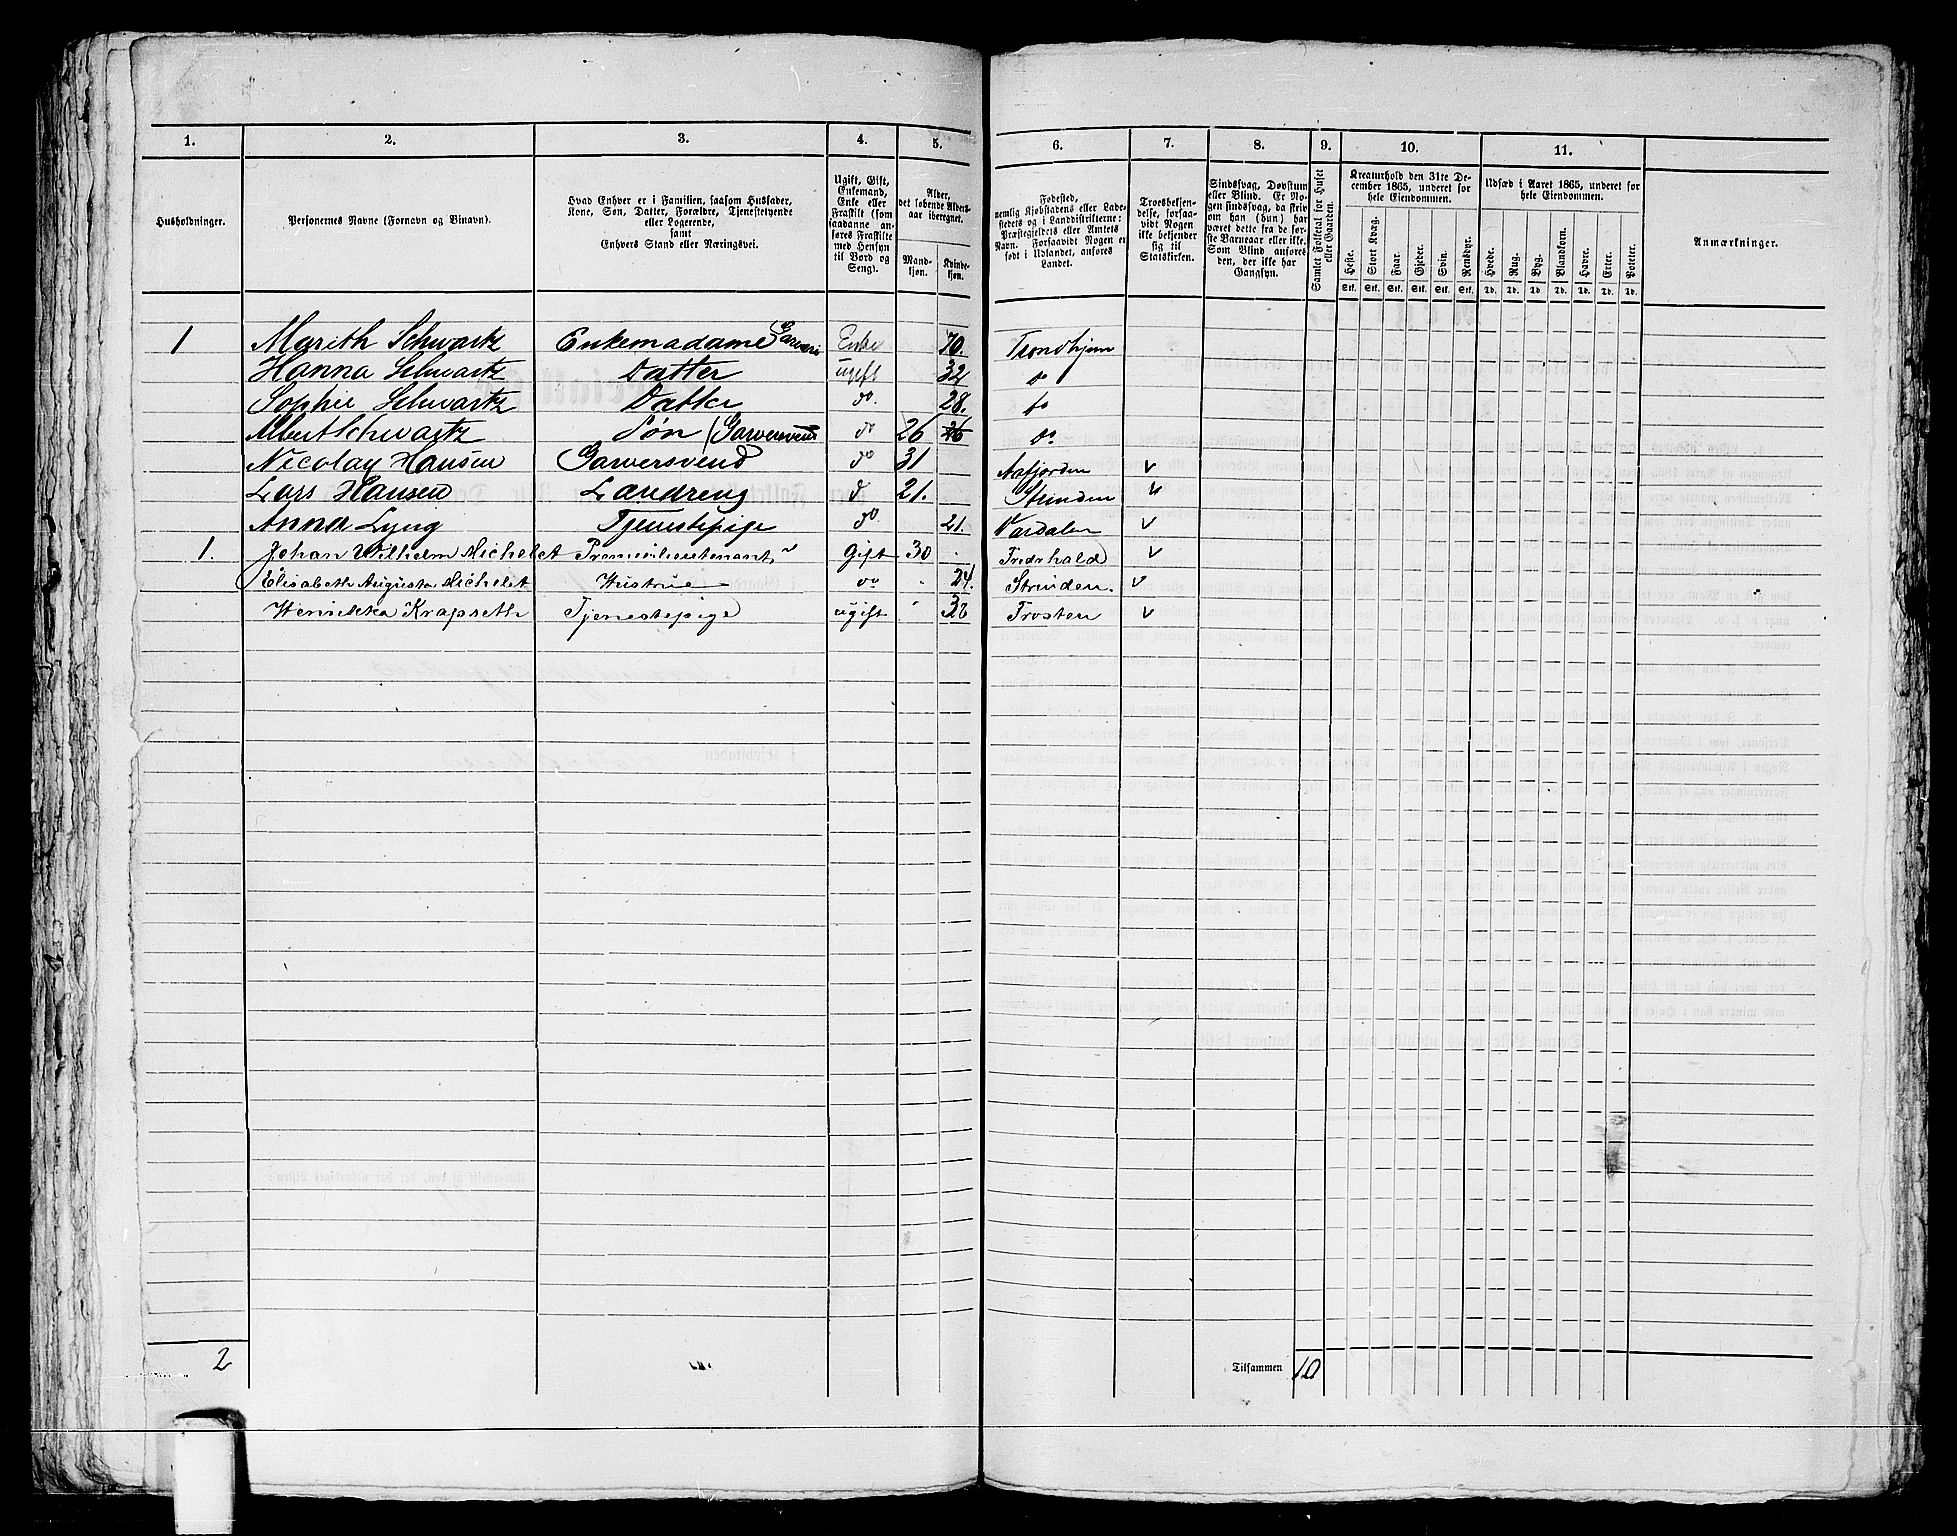 1. 2. 3. 4. 5. 6. 7. 8. 9. 10. 11.
Husholdninger.
Personernes Navne (Fornavn og Binavn).
Hvad Enhver er i Familien, saasom Husfader,
Kone, Søn, Datter, Forældre, Tjenestetyende
eller Logerende,
samt
Enhvers Stand eller Næringsvei.
Ugift, Gift,
Enkemand,
Enke eller
Fraskilt (som
saadanne an-
føres Fraskilte
med Hensyn
til Bord og
Seng).
Alder,
det løbende Alders-
aar iberegnet.
Mand-
kjøn.
Kvinde-
kjøn.
Fødested,
nemlig Kjøbstadens eller Lade-
stedets og i Landdistrikterne:
Præstegjeldets eller Amtets
Navn. Forsaavidt Nogen er
født i Udlandet, anføres
Landet.
Troesbekjen-
delse, forsaa-
vidt Nogen
ikke bekjender
sig til
Statskirken.
Sindssvag, Døvstum
eller Blind. Er No-
gen sindssvag, da skriv
om han (hun) har
været dette fra de før-
ste Barneaar eller ikke.
Som Blind anføres
den, der ikke har
Gangsyn.
Samlet Folketal for Huset
eller Gaarden.
Kreaturhold den 31te De-
cember 1865, underet for
hele Eiendommen.
Heste. Stort Kvæg. Faar. Gjeder. Svin. Rensdyr.
Stk. Stk. Stk. Stk. Stk. Stk.
Udsæd i Aaret 1865, underet for
hele Eiendommen.
Hvede. Rug. Byg. Blandkorn. Havre. Erter. Poteter.
Td. Td. Td. Td. Td. Td. Td.
Anmærkninger.
1 Marith Schwartz Enkemadame Garveri Enke 70. Trondhjem
Hanna Schwartz Datter ugift 32 do
Sophie Schwartz Datter do. 28. do
Albert Schwartz Søn (Garversvend do 26 26 do
Nicolay Hansen Garversvend do 31 Aafjorden v
Lars Hansen Læredreng d 21. Strinden v
Anna Lyng Tjenestepige do. 21. Værdalen v
1. Johan Wilhelm Michelet Premierlieutenant gift 30 Fredrhald v
Elisabeth Augusta Michelet Hustrue do 24. Strinden. v
Hen­rikka Krapseth Tjenestepige ugift Frosten v
2
Tilsammen 10